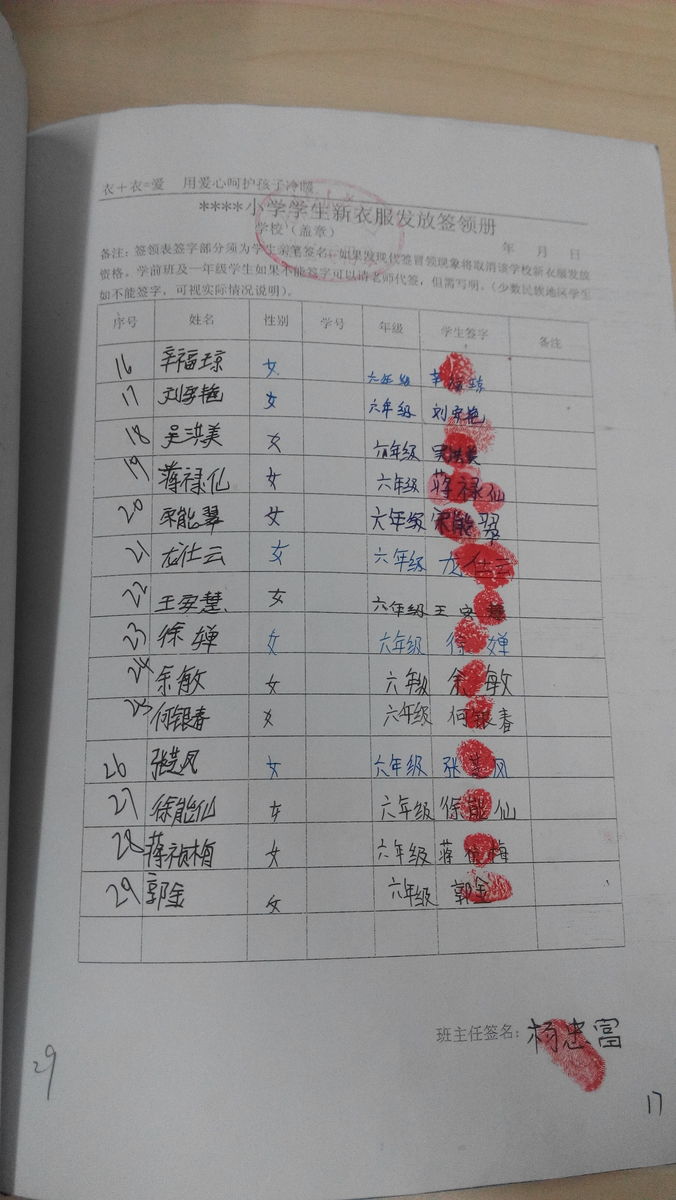 衣+衣=爱 用爱心呵护孩子冷暖
****小学学生新衣服发放签领册
学校（盖章） 年 月 日
备注：签领表签字部分须为学生亲笔签名，如果发现代签冒领现象将取消该学校新衣服发放
资格，学前班及一年级学生如果不能签字可以请老师代签，但需写明。（少数民族地区学生
如不能签字，可视实际情况说明）。
序号 姓名 性别 学号 年级 学生签字 备注
16 辛福琼 女 六年级 辛福琼
17 刘安艳 女 六年级 刘安艳
18 吴洪美 女 六年级 吴洪美
19 蒋禄仙 女 六年级 蒋禄仙
20 宋能翠 女 六年级 宋能翠
21 龙仕云 女 六年级 龙仕云
22 王安慧 女 六年级 王安慧
23 徐婵 女 六年级 徐婵
24 余敏 女 六年级 余敏
25 何银春 女 六年级 何银春
26 张 凤 女 六年级 张 凤
27 徐能仙 女 六年级 徐能仙
28 蒋 梅 女 六年级 蒋 梅
29 郭金 女 六年级 郭金
班主任签名：杨忠富
29
17